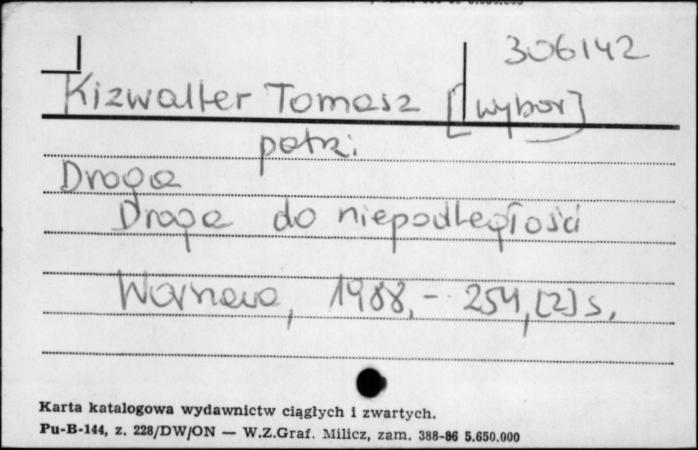 306142
Kizwalter Tomasz [wybór]
patrz:
Droga
Droga do niepodległości
Warszawa, 1988, - 254, [2] s.
Karta katalogowa wydawnictw ciągłych i zwartych.
Pu-B-144, z. 228/DW/ON — W.Z.Graf. Milicz, zam. 388-86 5.650.000